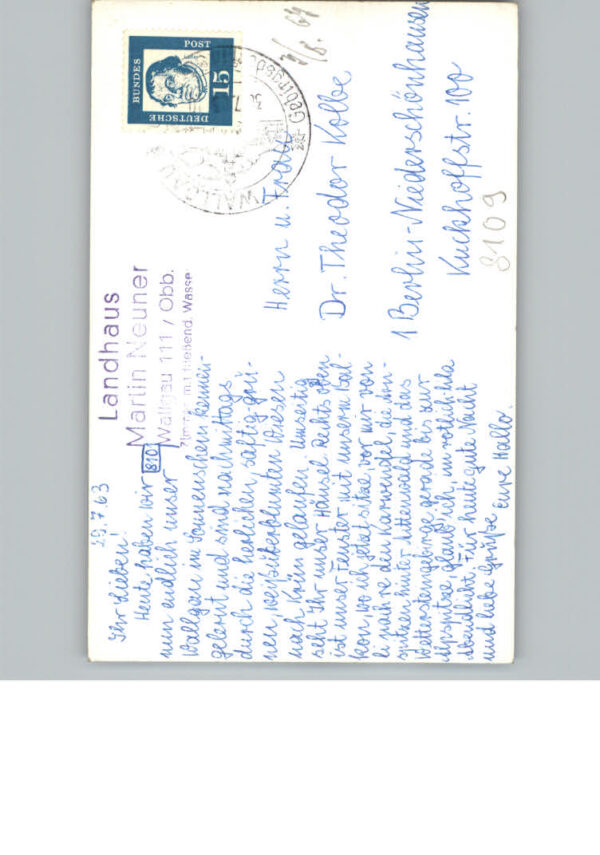 29.7.63
Ihr Lieben!
Heute haben wir
nun endlich unser
Wallgau im Sonnenschein kennen-
gelernt und sind nachmittags
durch die herrlichen, saftig-grü-
nen, weißüberblumten Wiesen
nach Krün gelaufen. Umseitig
seht Ihr unser Häusel. Rechts oben
ist unser Fenster mit unserm Bal-
kon, wo ich jetzt sitze, vor mir von
li nach re den Karwendel, die
spitzen hinter Mittenwald und das
Wettersteingebirge gerade bis zur
Alpspitze, glaub ich, im rötlich-lila
Abendlicht. Für heute gute Nacht
und liebe Grüße Eure Hallo.
Landhaus
Martin Neuner
Wallgau 111 / Obb.
Zimmer mit fließend. Wasser
810
DEUTSCHE
BUNDES
POST
15
WALLGAU
Herrn u. Frau
Dr. Theodor Kolbe
1 Berlin-Niederschönhausen
Kuckhoffstr. 100
8109